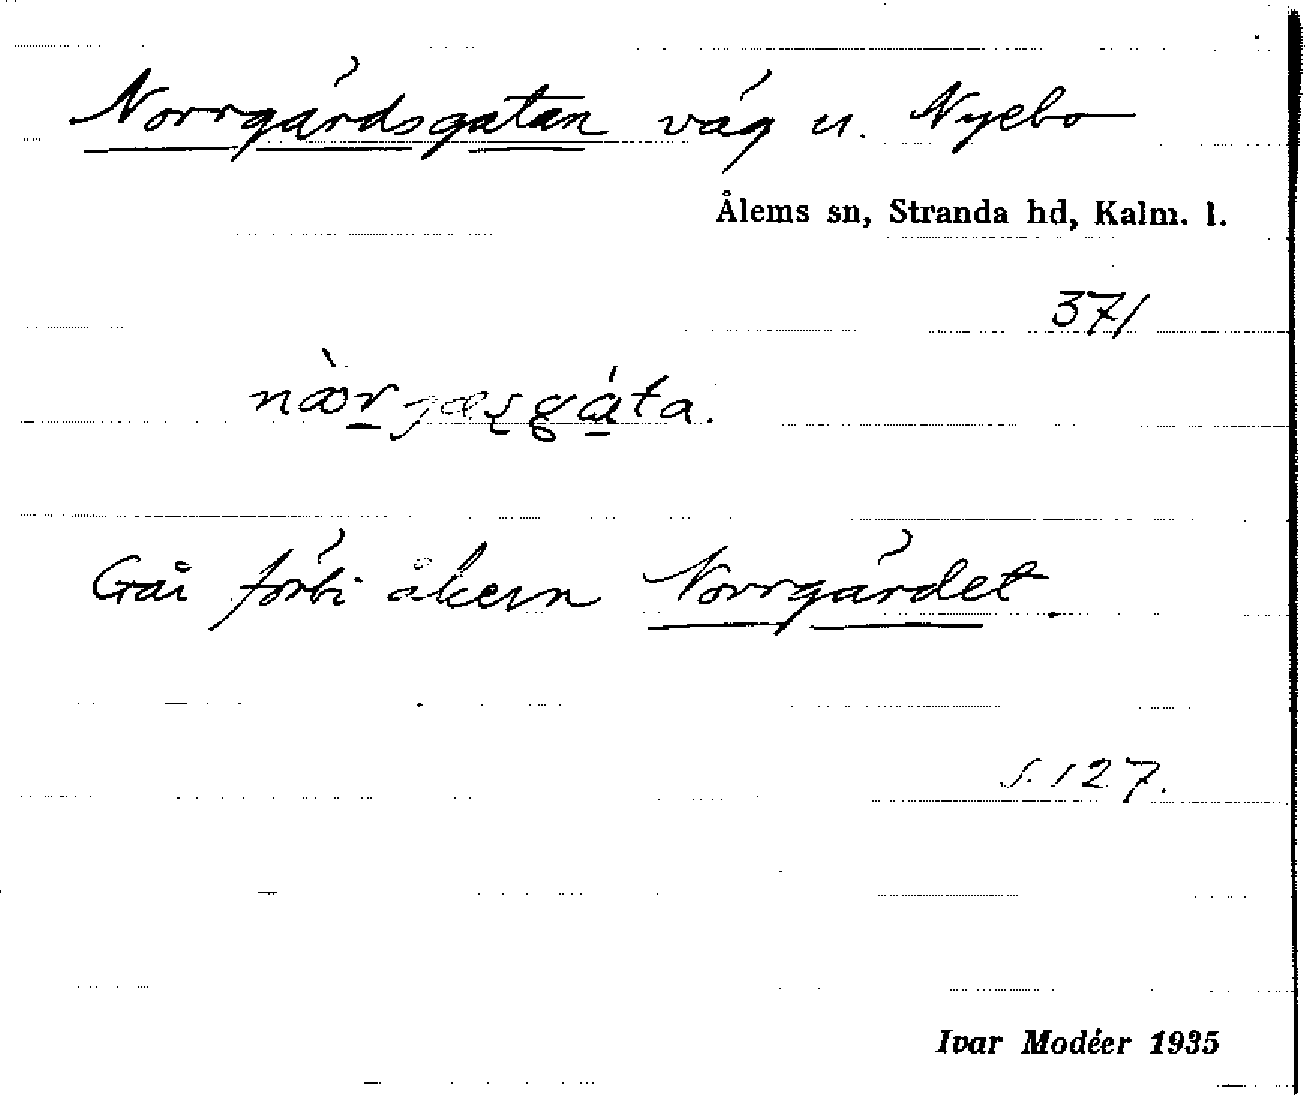 Norrgärdsgatan väg u. Nyebo
Ålems sn, Stranda hd, Kalm. l.
371
Går förbi åkern Norrgärdet.
s. 127.
Ivar Modéer 1935